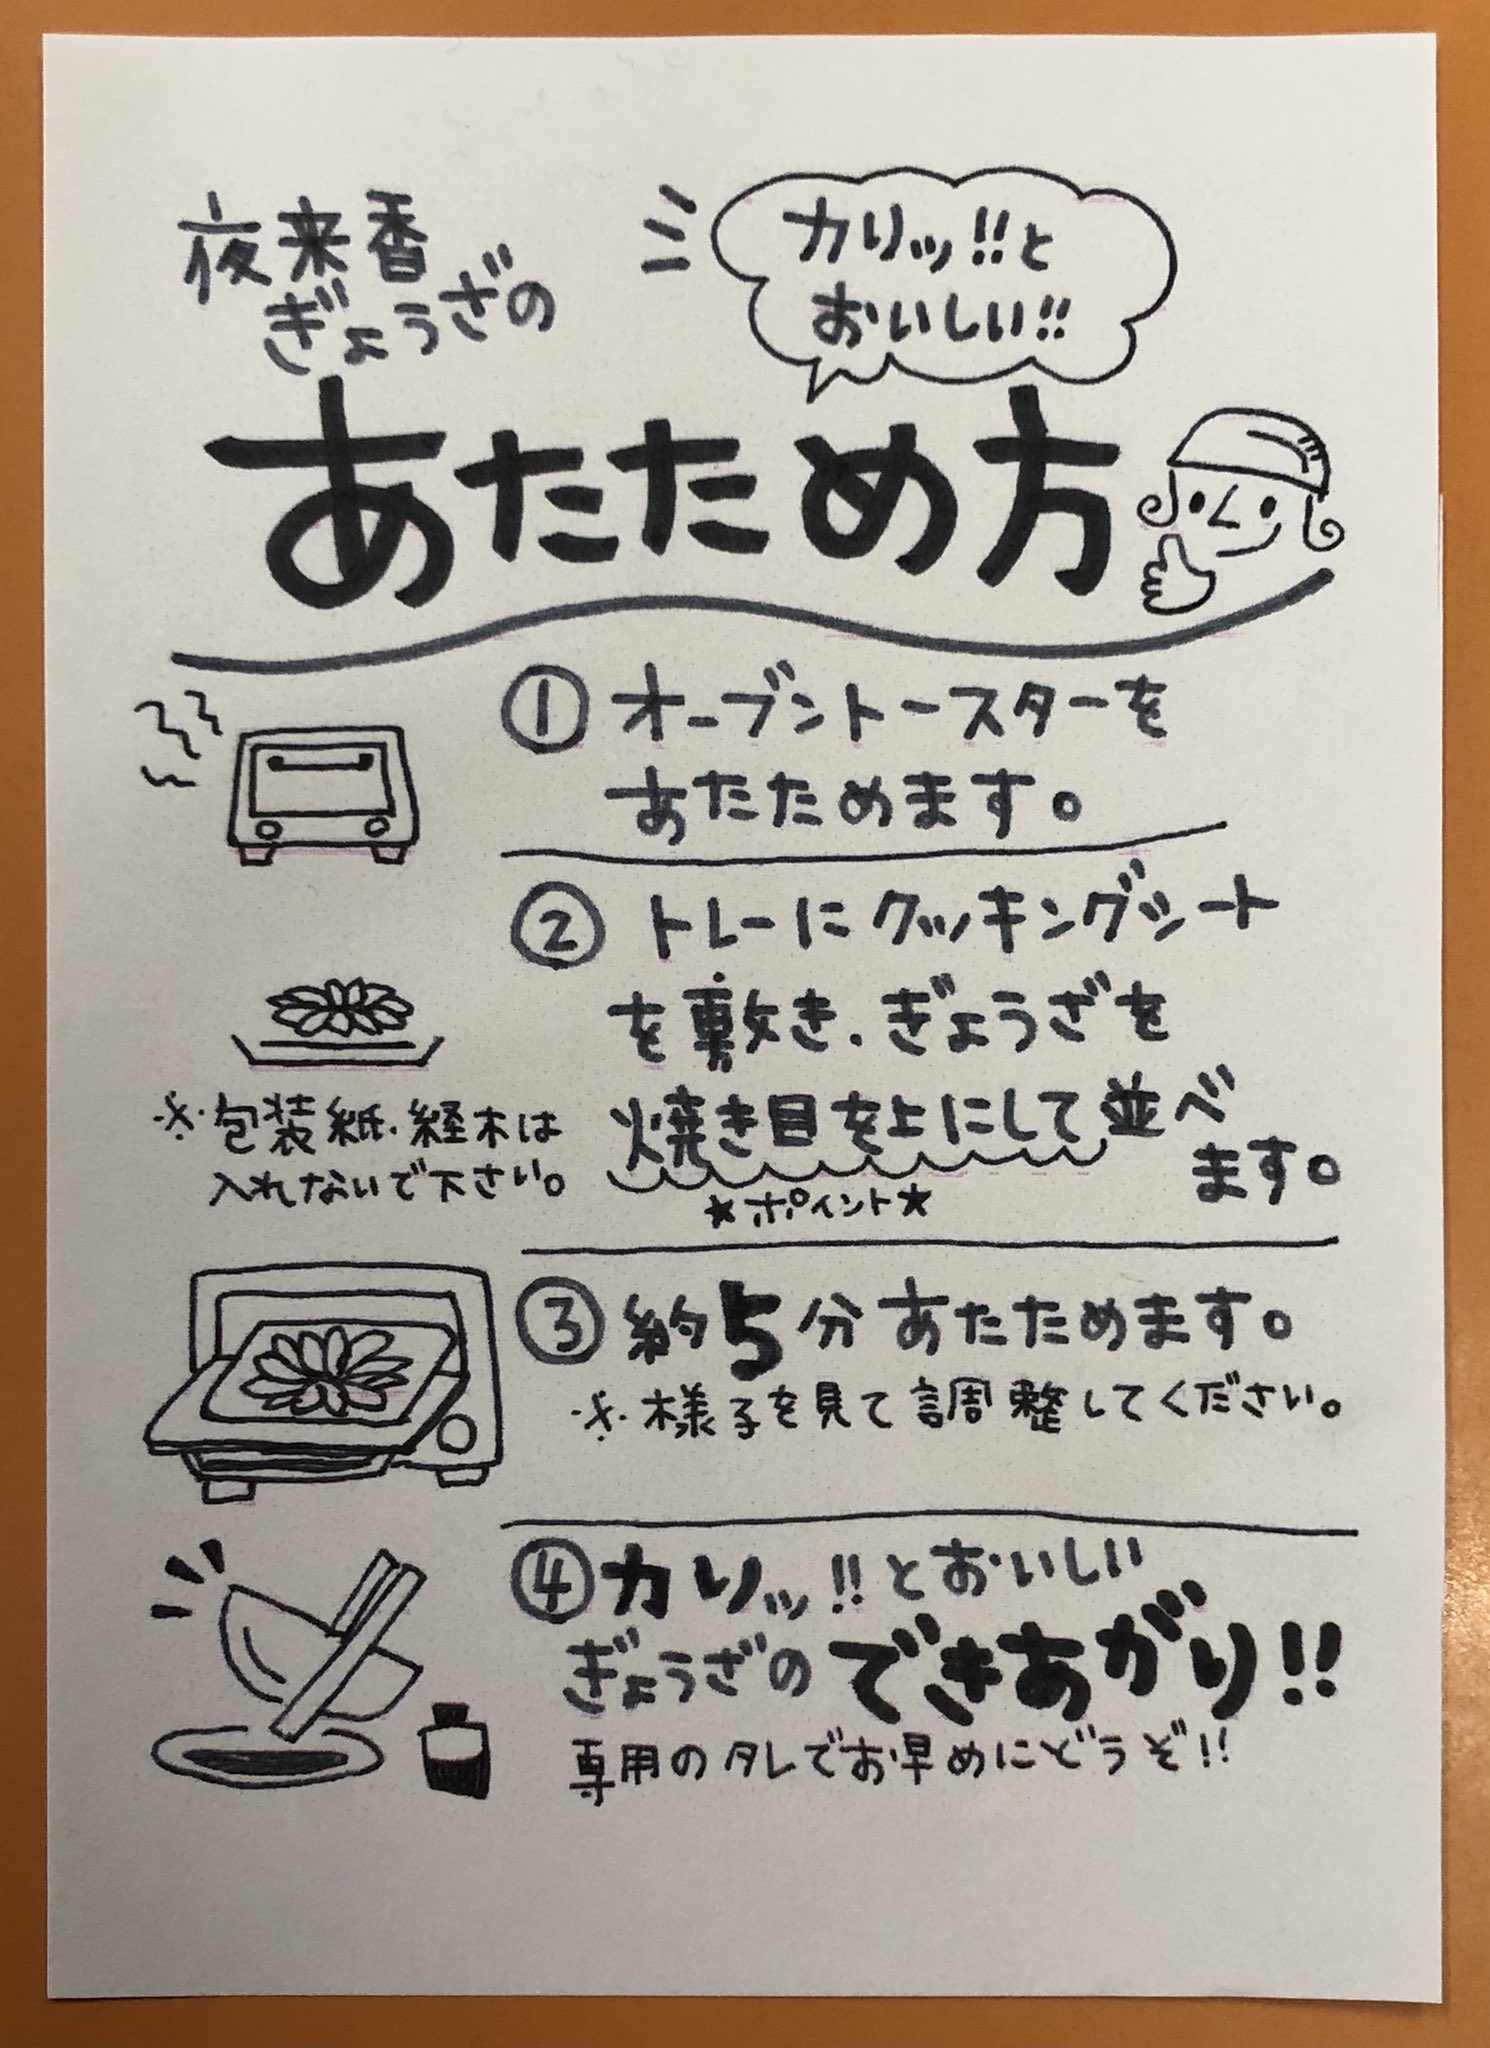 夜来香
ぎょうざの
カリッ!!と
おいしい!!
あたため方
① オーブントースターを
あたためます。
② トレーにクッキングシート
を敷き、ぎょうざを
焼き目を上にして並べ
ます。
★ポイント★
※包装紙、経木は
入れないで下さい。
③ 約5分あたためます。
※様子を見て調整してください。
④ カリッ!!とおいしい
ぎょうざのできあがり!!
専用のタレでお早めにどうぞ!!